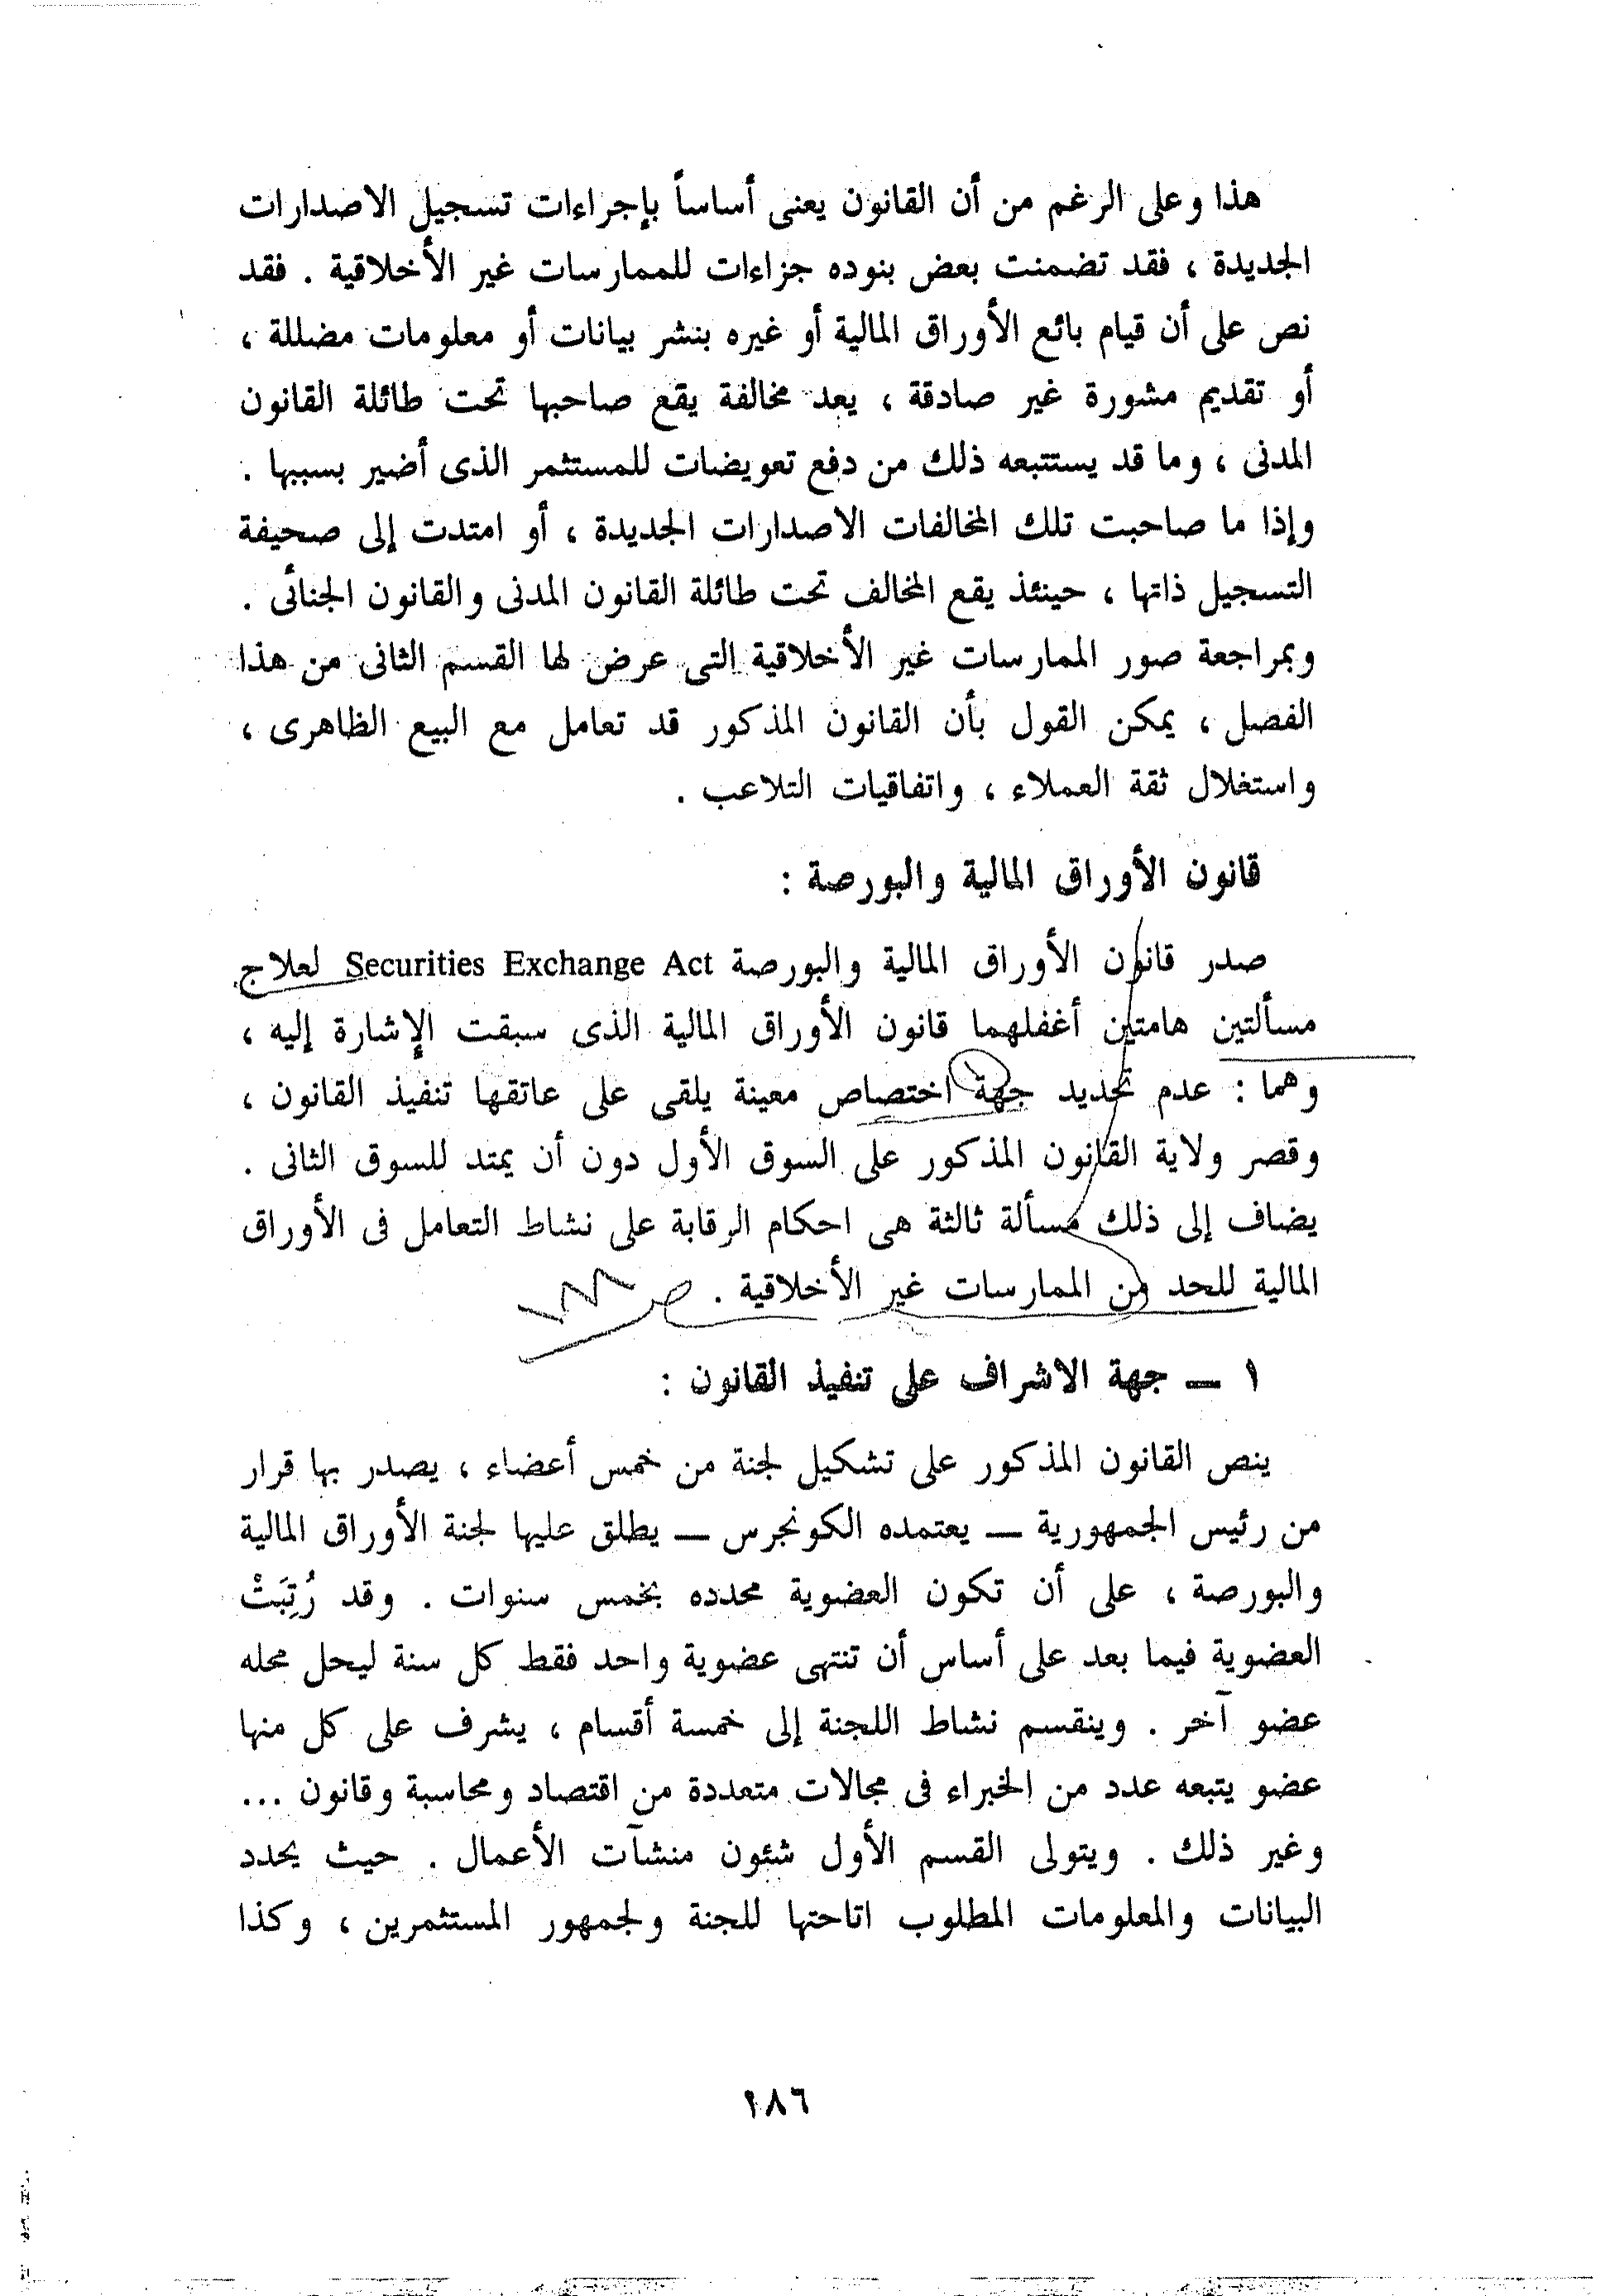 هذا وعلى الرغم من أن القانون يعنى أساساً بإجراءات تسجيل الاصدارات
الجديدة ، فقد تضمنت بعض بنوده جزاءات للممارسات غير الأخلاقية . فقد
نص على أن قيام بائع الأوراق المالية أو غيره بنشر بيانات أو معلومات مضللة ،
أو تقديم مشورة غير صادقة ، يعد مخالفة يقع صاحبها تحت طائلة القانون
المدنى ، وما قد يستتبعه ذلك من دفع تعويضات للمستثمر الذى أضير بسببها .
وإذا ما صاحبت تلك المخالفات الاصدارات الجديدة ، أو امتدت إلى صحيفة
التسجيل ذاتها ، حينئذ يقع المخالف تحت طائلة القانون المدنى والقانون الجنائى .
وبمراجعة صور الممارسات غير الأخلاقية التى عرض لها القسم الثانى من هذا
الفصل ، يمكن القول بأن القانون المذكور قد تعامل مع البيع الظاهرى ،
واستغلال ثقة العملاء ، واتفاقيات التلاعب .
قانون الأوراق المالية والبورصة :
صدر قانون الأوراق المالية والبورصة Securities Exchange Act لعلاج
مسألتين هامتين أغفلهما قانون الأوراق المالية الذى سبقت الإشارة إليه ،
وهما : عدم تحديد جهة اختصاص معينة يلقى على عاتقها تنفيذ القانون ،
وقصر ولاية القانون المذكور على السوق الأول دون أن يمتد للسوق الثانى .
يضاف إلى ذلك مسألة ثالثة هى احكام الرقابة على نشاط التعامل فى الأوراق
المالية للحد من الممارسات غير الأخلاقية .
١ ــ جهة الاشراف على تنفيذ القانون :
ينص القانون المذكور على تشكيل لجنة من خمس أعضاء ، يصدر بها قرار
من رئيس الجمهورية ــ يعتمده الكونجرس ــ يطلق عليها لجنة الأوراق المالية
والبورصة ، على أن تكون العضوية محدده بخمس سنوات . وقد رُتِبَتْ
العضوية فيما بعد على أساس أن تنتهى عضوية واحد فقط كل سنة ليحل محله
عضو آخر . وينقسم نشاط اللجنة إلى خمسة أقسام ، يشرف على كل منها
عضو يتبعه عدد من الخبراء فى مجالات متعددة من اقتصاد ومحاسبة وقانون ...
وغير ذلك . ويتولى القسم الأول شئون منشآت الأعمال . حيث يحدد
البيانات والمعلومات المطلوب اتاحتها للجنة ولجمهور المستثمرين ، وكذا
١٨٦